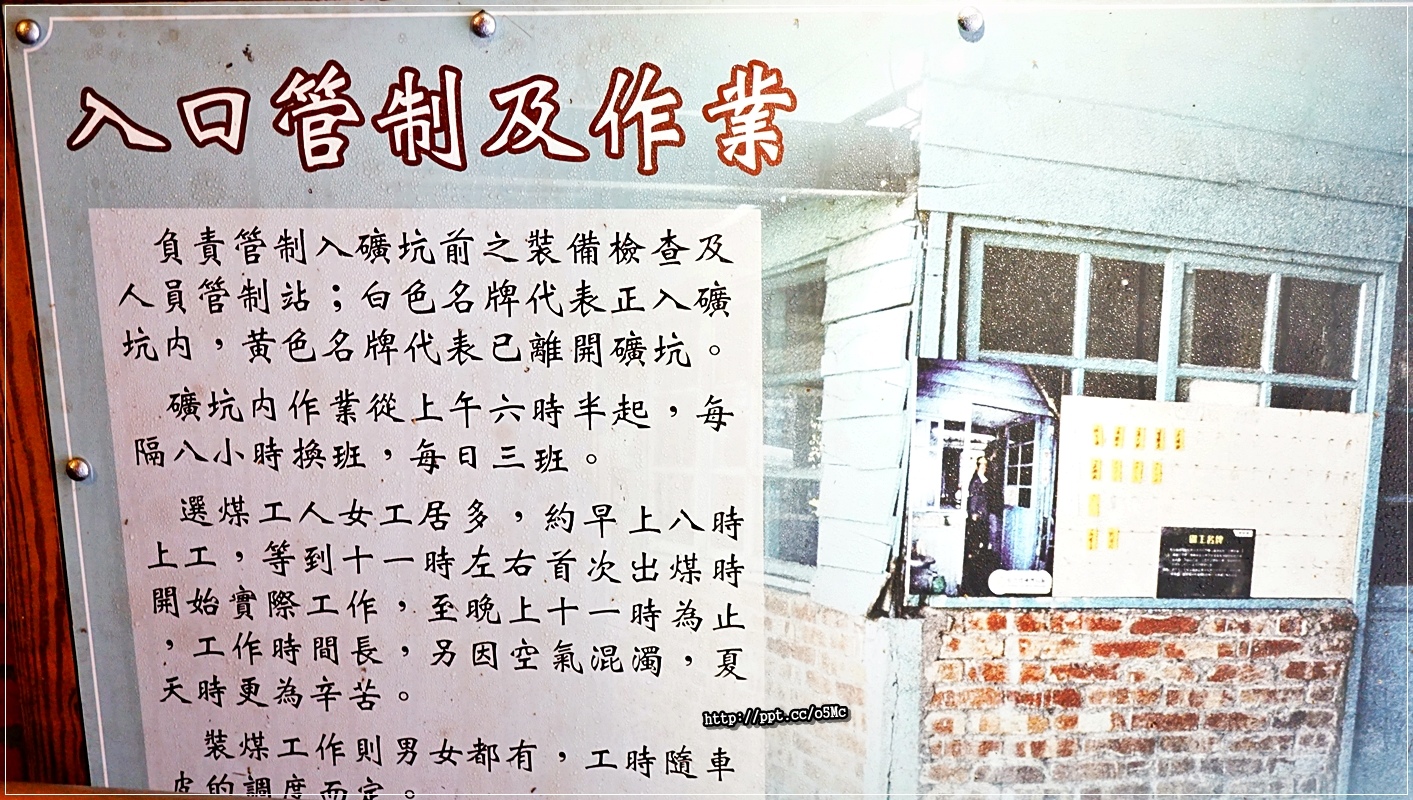 入口管制及作業
負責管制入礦坑前之裝備檢查及
人員管制站；白色名牌代表正入礦
坑內，黃色名牌代表已離開礦坑。
礦坑內作業從上午六時半起，每
隔八小時換班，每日三班。
選煤工人女工居多，約早上八時
上工，等到十一時左右首次出煤時
開始實際工作，至晚上十一時為止
，工作時間長，另因空氣混濁，夏
天時更為辛苦。
裝煤工作則男女都有，工時隨車
皮的調度而定。
礦工名牌
http://ppt.cc/o5Mc